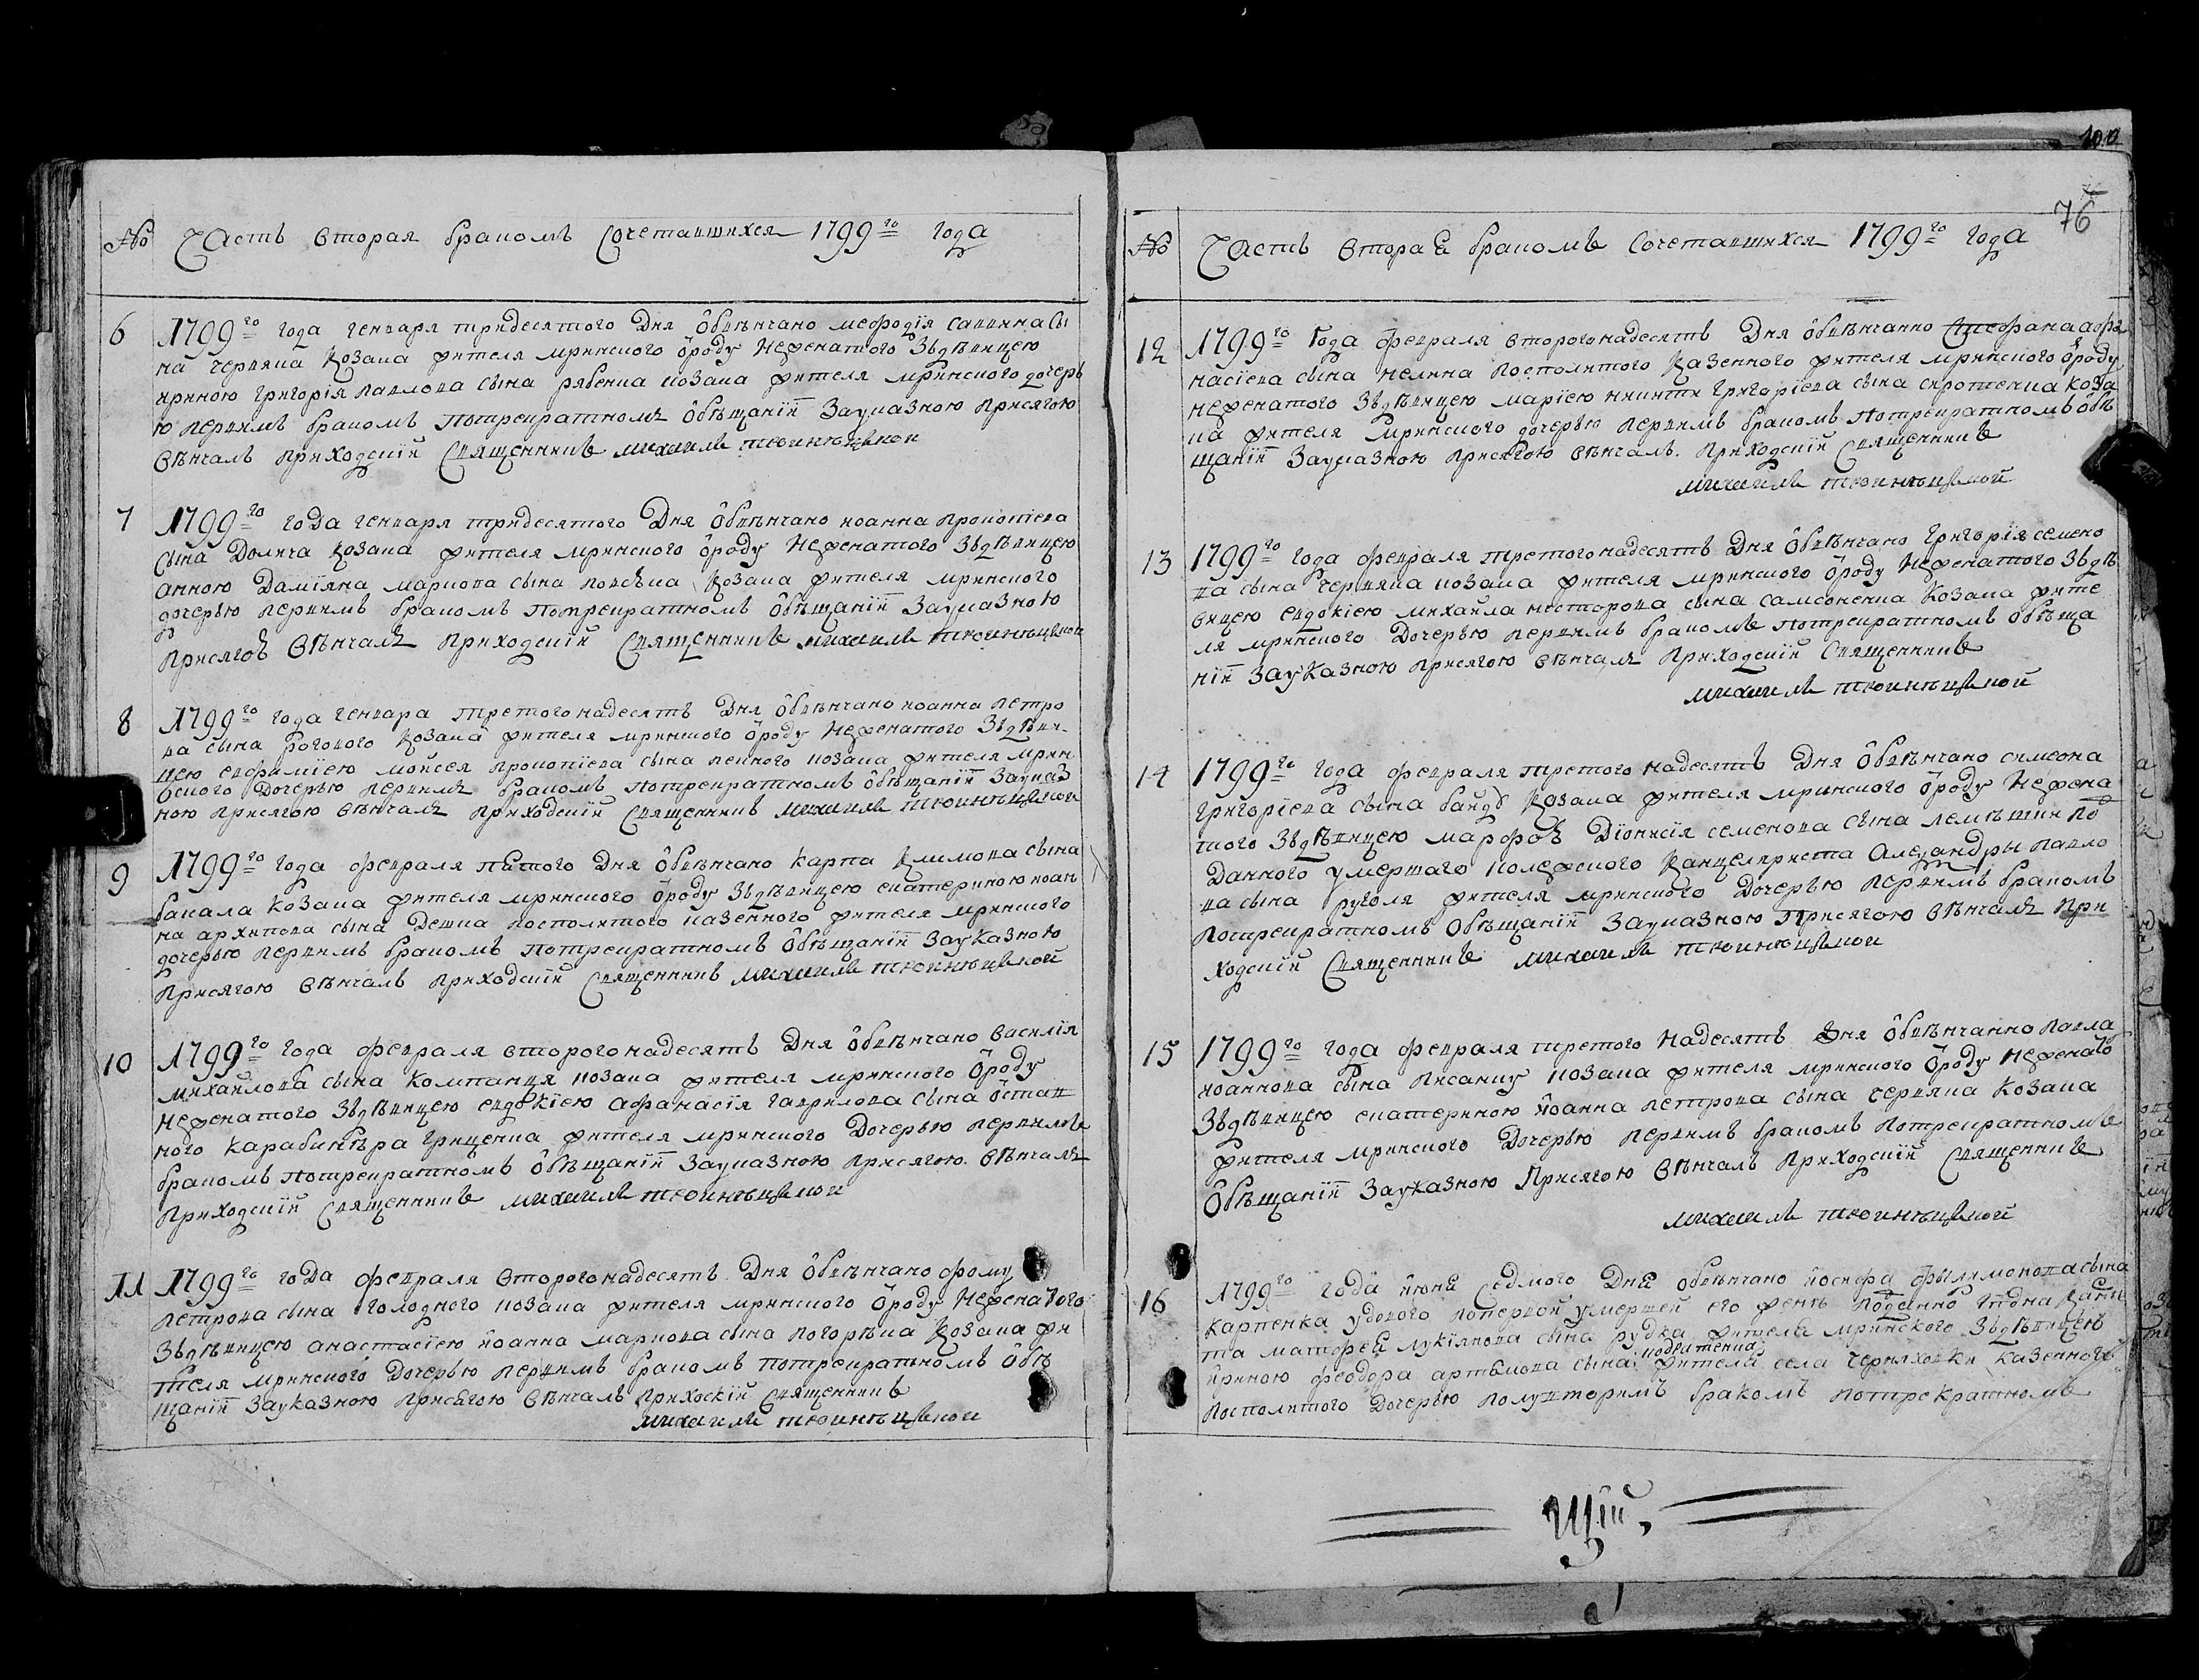 № Часть вторая бракомъ Сочетавшихся 1799го года
6 1799го года генваря тридесятого Дня Обвѣнчано мефодія саввина Сы
на червяка Козака жителя мринского ѿроду Неженатого Звдѣвицею
ириною Григорія павлова сына рябенка козака жителя мринского дочерь
ю первимъ бракомъ потрекратномъ Обѣщаніи Зауказною присягою
вѣнчалъ приходскій Священникъ михаилъ
7 1799го года генваря тридесятого Дня Обвѣнчано иоанна прокопіева
сына Долича козака жителя мринского ѿроду Неженатого Звдѣвицею
анною Даміяна маркова сына козака жителя мринского
дочерью первимъ бракомъ потрекратномъ Обѣщаніи Зауказною
присягоѣ вѣнчалъ приходскій Священникъ михаилъ
8 1799го года генвара третогонадесять Дня Обвѣнчано иоанна петро
ва сына рогового козака жителя мринского ѿроду Неженатого Звдѣви
цею евфимією мойсея прокопіева сына козака жителя мрин
ского Дочерью первимъ бракомъ потрекратномъ Обѣщаніи Зауказ
ною присягою вѣнчалъ приходскій Священникъ михаилъ
9 1799го года февраля пятого Дня Обвѣнчано карпа климова сына
бакала козака жителя мринского ѿроду Звдѣвицею екатериною иоан
на архипова сына посполитого казенного жителя мринского
дочерью первимъ бракомъ потрекратномъ Обѣщаніи Зауказною
присягою вѣнчалъ приходскій Священникъ михаилъ
10 1799го года февраля второгонадесять Дня Обвѣнчано василія
михайлова сына компанця козака жителя мринского ѿроду
неженатого Звдѣвицею евдокією афанасія гаврилова сына ѿстав
ного карабинѣра гриценка жителя мринского Дочерью первимъ
бракомъ потрекратномъ Обѣщаніи Зауказною присягою вѣнчалъ
приходскій Священникъ михаилъ
11 1799го года февраля второгонадесять Дня Обвѣнчано фому
петрова сына голодного козака жителя мринского ѿроду неженатого
Звдѣвицею анастасією иоанна маркова сына погорѣла козака жи
теля мринского Дочерью первимъ бракомъ потрекратномъ Обѣ
щаніи Зауказною присягою вѣнчалъ прихоскій Священникъ
михаилъ
76
№ Часть вторая бракомъ Сочетавшихся 1799го года
12 1799го Года февраля второгонадесять Дня Обвѣнчанно Стефана афа
насіева сына посполитого казенного жителя мринского ѿроду
неженатого Звдѣвицею марією никити григорієва сына сиротенка коза
ка жителя мринского дочерью первимъ бракомъ потрекратномъ обѣ
щаніи Зауказною присягою вѣнчалъ приходскій Священникъ
михаилъ
13 1799го года февраля третогонадесять Дня Обвѣнчано григорія семено
ва сына червяка козака жителя мринского ѿроду Неженатого Звдѣ
вицею евдокією михайла несторова сына самсоненка козака жите
ля мринского Дочерью первимъ бракомъ потрекратномъ обѣща
ніи Зауказною присягою вѣнчалъ приходскій Священникъ
михаилъ
14 1799го года февраля третого надесять Дня Обвѣнчано симеона
григорієва сына байдѣ козака жителя мринского ѿроду Нежена
того Звдѣвицею марфоѣ Діонисія семенова сына по
Данного умершаго колежского канцеляриста Александры павло
ва сына жителя мринского Дочерью первимъ бракомъ
потрекратномъ Обѣщаніи Зауказною присягою вѣнчалъ при
ходскій Священникъ михаилъ
15 1799го года февраля третого надесять Дня Обвѣнчанно павла
иоаннова сына козака жителя мринского ѿроду неженато
Звдѣвицею екатериною иоанна петрова сына червяка козака
жителя мринского Дочерью первимъ бракомъ потрекратномъ
Обѣщаніи Зауказною присягою вѣнчалъ приходскій Священникъ
михаилъ
16 1799го года июня Седмого Дня обвѣнчано иосифа филимонова сына
карпенка удового поперіой умершей его женѣ
та матфея лукіянова сына рудка жителя мринского Звдѣвицею
ириною феодора артѣмова сына жителя села черняховки казенного
посполитого Дочерью полувторимъ бракомъ потрекратномъ